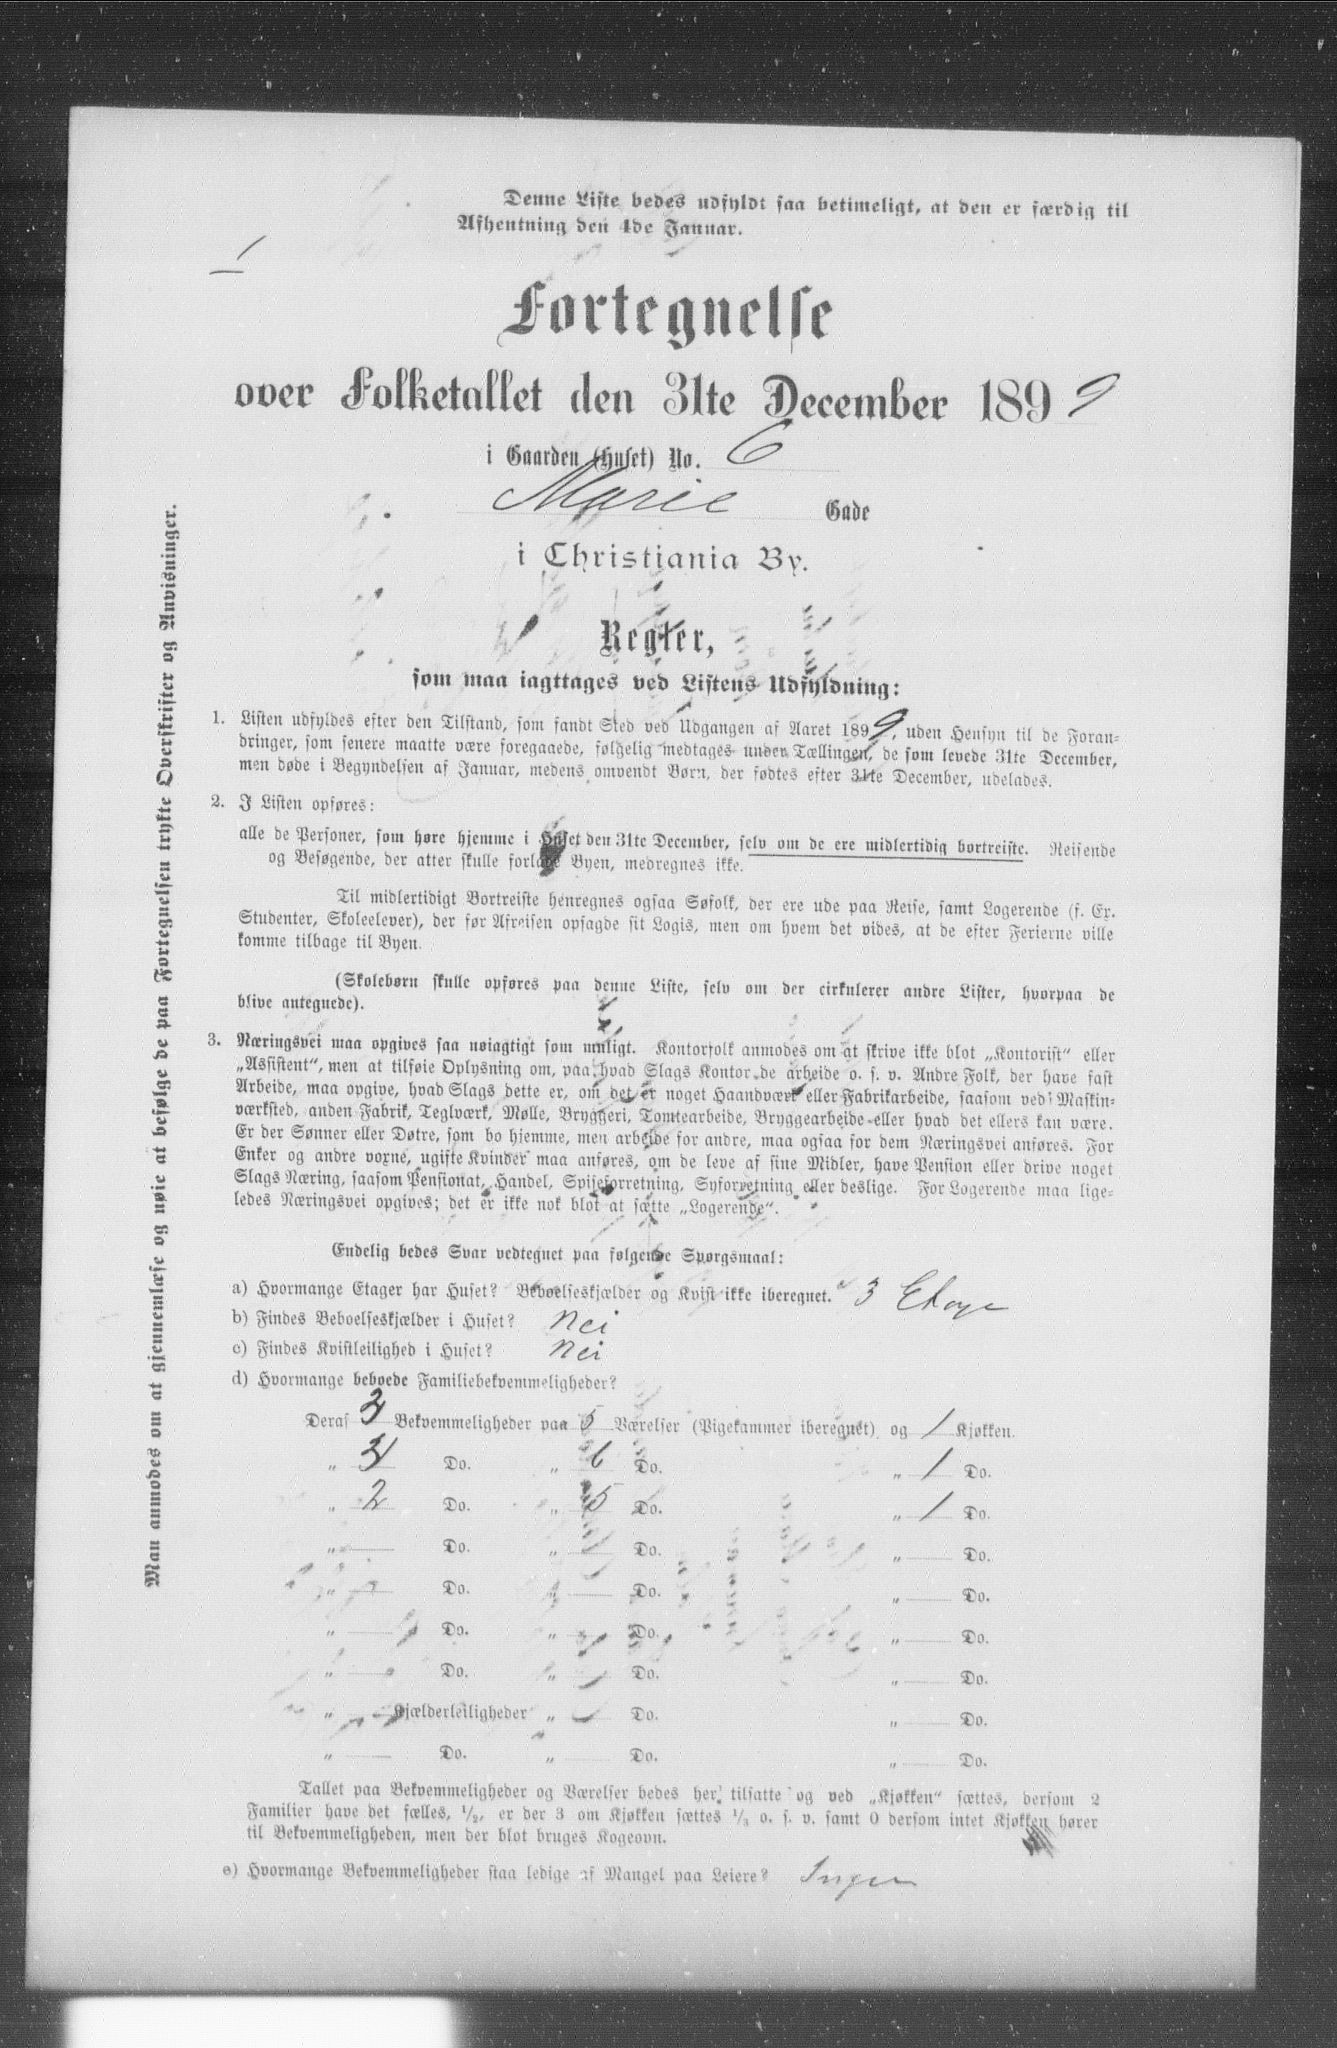 Denne Liste bedes udfyldt saa betimeligt, at den er færdig til
Afhentning den 4de Januar.
1
Fortegnelse
over Folketallet den 31te December 1899
i Gaarden (Huset) No. 6
Marie Gade
i Christiania By.
Regler,
som maa iagttages ved Listens Udfyldning:
1. Listen udfyldes efter den Tilstand, som fandt Sted ved Udgangen af Aaret 1899, uden Hensyn til de Foran-
dringer, som senere maatte være foregaaede, følgelig medtages under Tællingen, de som levede 31te December,
men døde i Begyndelsen af Januar, medens omvendt Børn, der fødtes efter 31te December, udelades.
2. I Listen opføres:
alle de Personer, som høre hjemme i Huset den 31te December, selv om de ere midlertidig bortreiste. Reisende
og Besøgende, der atter skulle forlade Byen, medregnes ikke.
Til midlertidigt Bortreiste henregnes ogsaa Søfolk, der ere ude paa Reise, samt Logerende (f. Ex.
Studenter, Skoleelever), der før Afreisen opsagde sit Logis, men om hvem det vides, at de efter Ferierne ville
komme tilbage til Byen.
(Skolebørn skulle opføres paa denne Liste, selv om der cirkulerer andre Lister, hvorpaa de
blive antegnede).
3. Næringsvei maa opgives saa nøiagtigt som muligt. Kontorfolk anmodes om at skrive ikke blot „Kontorist" eller
„Assistent", men at tilføie Oplysning om, paa hvad Slags Kontor de arbeide o. s. v. Andre Folk, der have fast
Arbeide, maa opgive, hvad Slags dette er, om det er noget Haandværk eller Fabrikarbeide, saasom ved Maskin-
værksted, anden Fabrik, Teglværk, Mølle, Bryggeri, Tomtearbeide, Bryggearbeide eller hvad det ellers kan være.
Er der Sønner eller Døtre, som bo hjemme, men arbeide for andre, maa ogsaa for dem Næringsvei anføres. For
Enker og andre voxne, ugifte Kvinder maa anføres, om de leve af sine Midler, have Pension eller drive noget
Slags Næring, saasom Pensionat, Handel, Spiseforretning, Syforretning eller deslige. For Logerende maa lige-
ledes Næringsvei opgives; det er ikke nok blot at sætte „Logerende".
Endelig bedes Svar vedtegnet paa følgende Spørgsmaal:
a) Hvormange Etager har Huset? Beboelseskjælder og Kvist ikke iberegnet. 3 Etage
b) Findes Beboelseskjælder i Huset? Nei
c) Findes Kvistleilighed i Huset? Nei
d) Hvormange beboede Familiebekvemmeligheder?
Deraf Bekvemmeligheder paa 5 Værelser (Pigekammer iberegnet) og 1 Kjøkken.
„ Do. „ 6 Do. „ 1 Do.
„ 2 Do. „ 5 Do. „ 1 Do.
„ Do. „ Do. „ Do.
„ Do. „ Do. „ Do.
„ Do. „ Do. „ Do.
„ Do. „ Do. „ Do.
„ Kjælderleiligheder „ Do. „ Do.
„ Do. „ Do. „ Do.
Tallet paa Bekvemmeligheder og Værelser bedes her tilsatte og ved „Kjøkken" sættes, dersom 2
Familier have det fælles, 1/2, er der 3 om Kjøkken sættes 1/3 o. s. v. samt 0 dersom intet Kjøkken hører
til Bekvemmeligheden, men der blot bruges Kogeovn.
e) Hvormange Bekvemmeligheder staa ledige af Mangel paa Leiere? Ingen
Man anmodes om at gjennemlæse og nøie at befølge de paa Fortegnelsen trykte Overskrifter og Anvisninger.